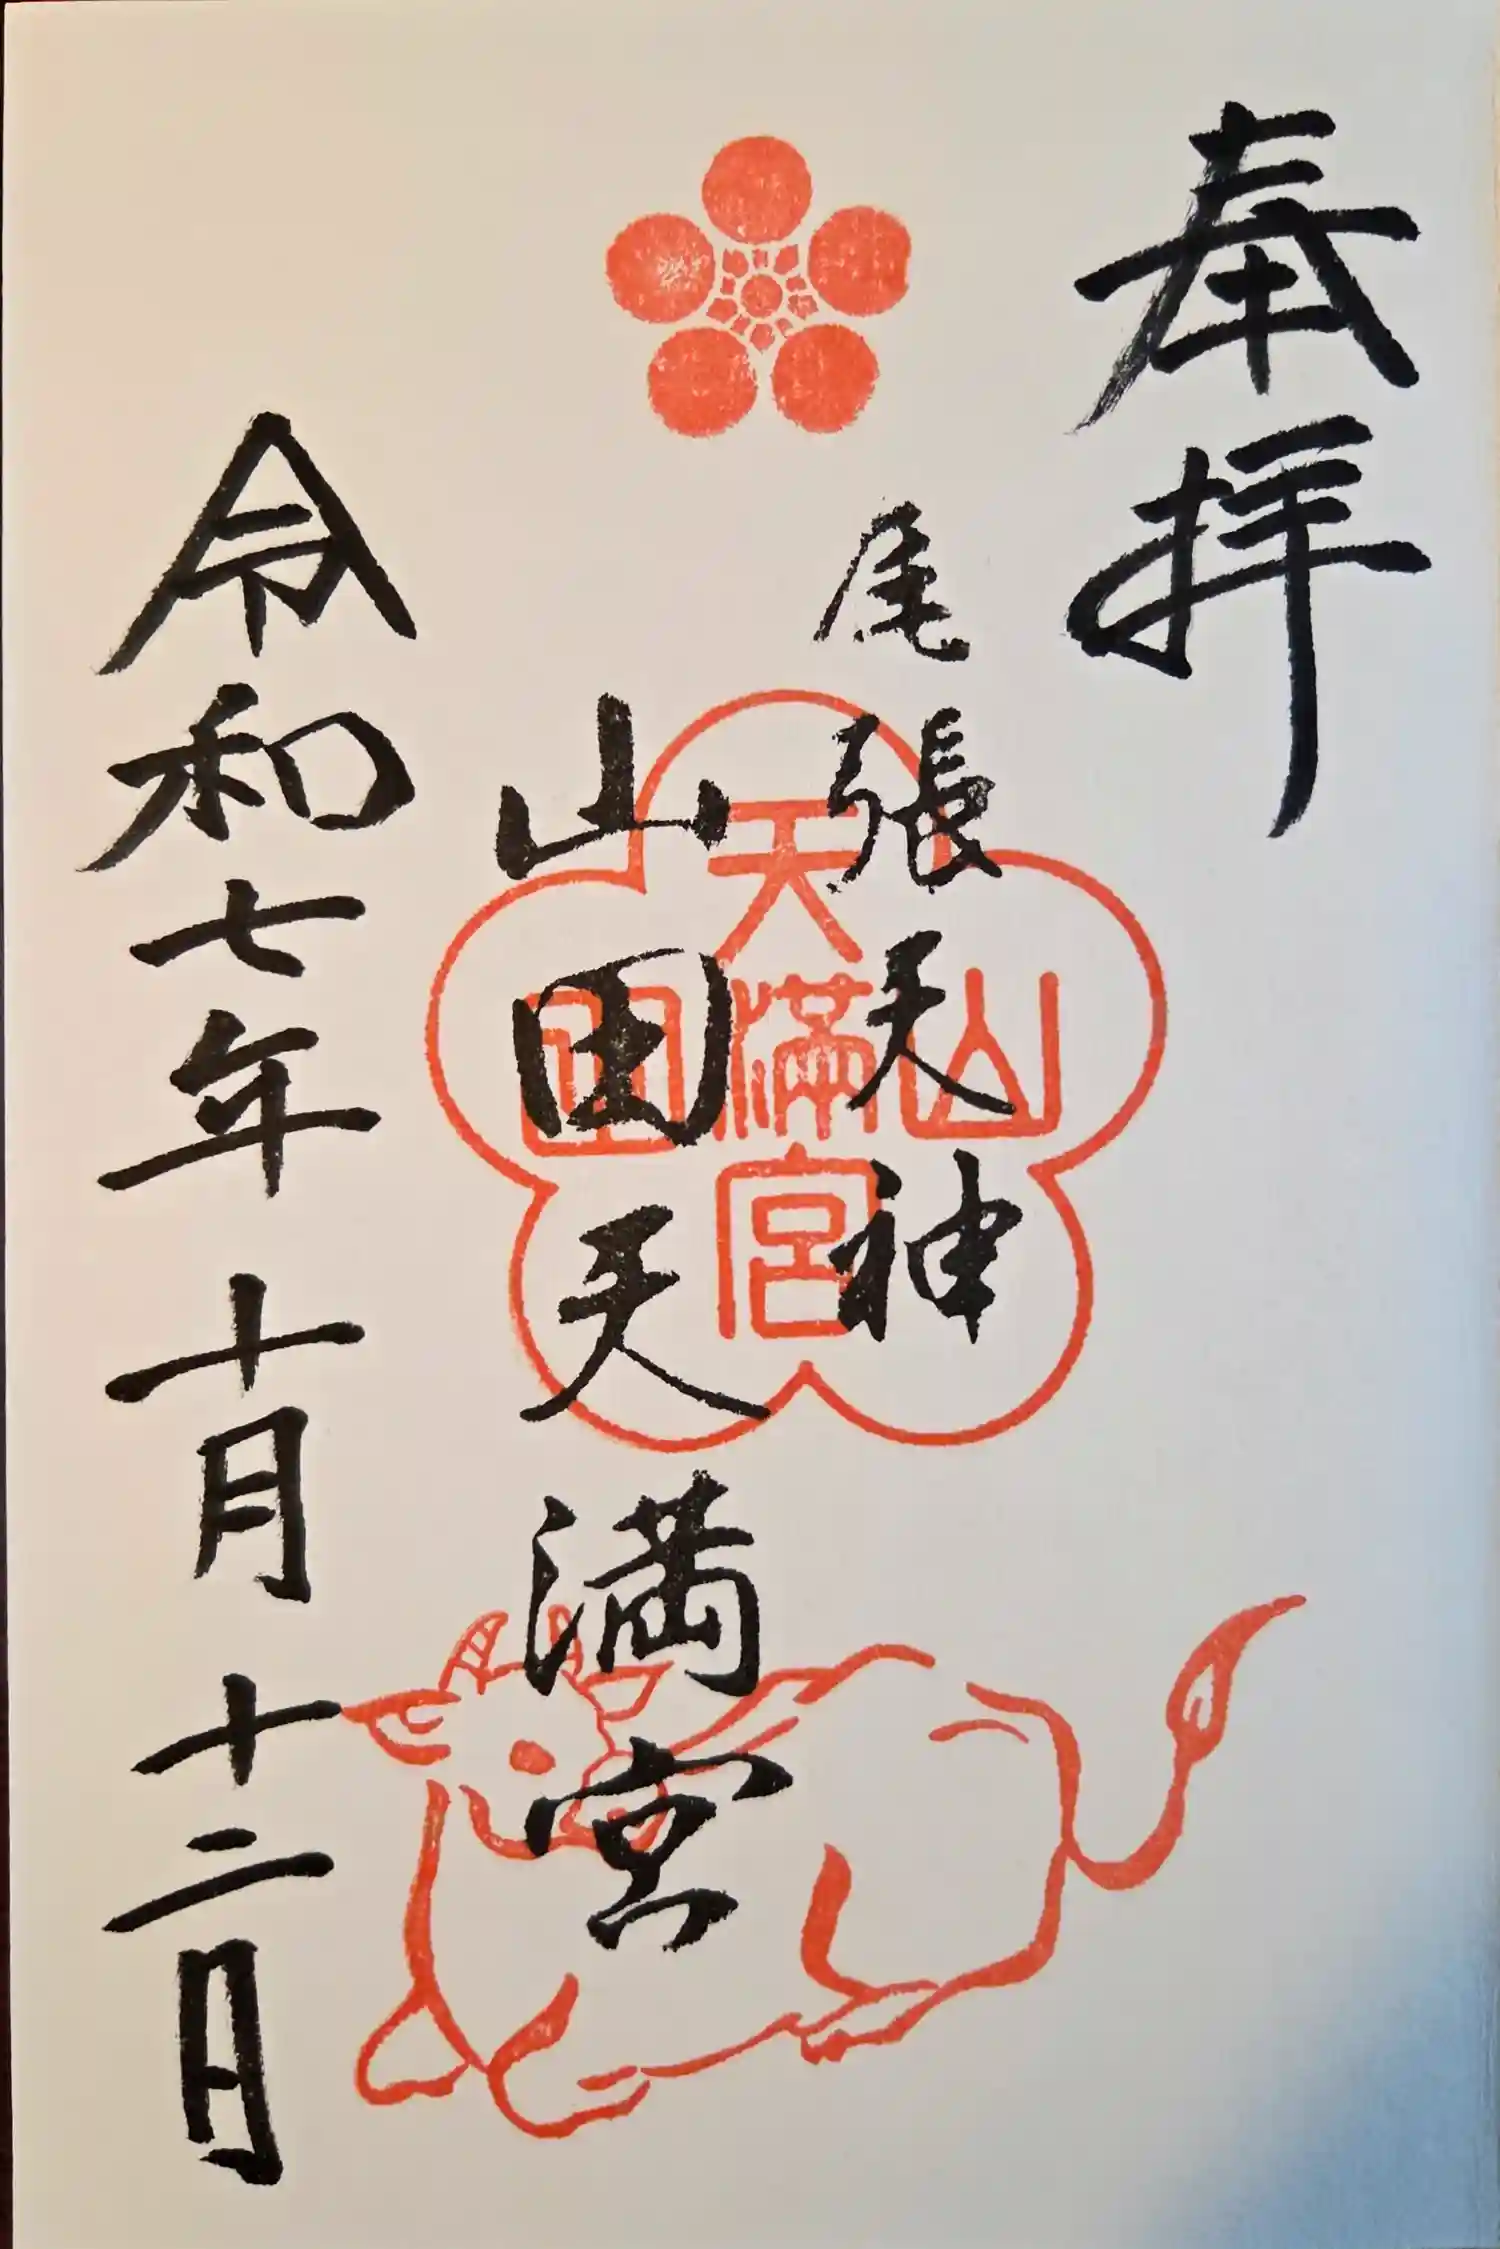 奉拝
尾張天神
山田天満宮
天満宮
山田
令和七年十月十二日